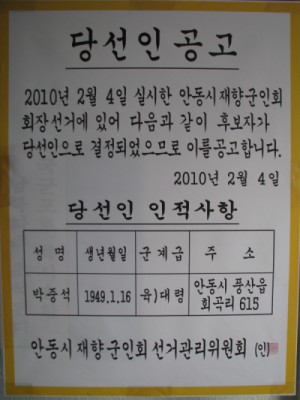 당선인공고
2010년 2월 4일 실시한 안동시재향군인회
회장선거에 있어 다음과 같이 후보자가
당선인으로 결정되었으므로 이를공고합니다.
2010년 2월 4일
당선인 인적사항
성 명 생년월일 군 계급 주 소
박증석 1949.1.16 육)대령 안동시 풍산읍
회곡리 615
안동시재향군인회선거관리위원회 (인)